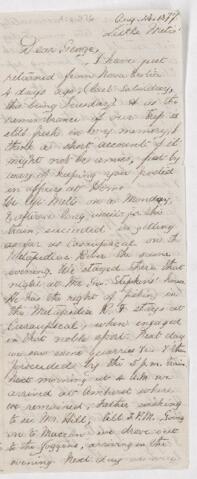 Aug. 14. 1877
Little Metis
Dear George,
I have just
returned from Nova Scotia
4 days ago, (last Saturday,
this being Tuesday). & as the
remembrance of our trip is
still fresh in every memory, I
think a short account of it
might not be amiss, just by
way of keeping you posted
in affairs at Home.
We left Metis on a Monday,
& after a long wait for the
train, succeeded in getting
as far as Causapscal on the
Metapedia River the same
evening. We stayed there that
night at Mr. Geo. Stephens' house
He has the right of fishing in
the Metapedia R. & stays at
Causapscal, when engaged
in that noble sport. Next day
we saw some quarries &
proceeded by the 5 p.m. train
Next morning at 4 A.M. we
arrived at Amherst where
we remained, Father wishing
to see Mr. Hill, till 2 P.M. Going
on to Maccan we drove out
to the Joggins, arriving in the
evening. Next day we